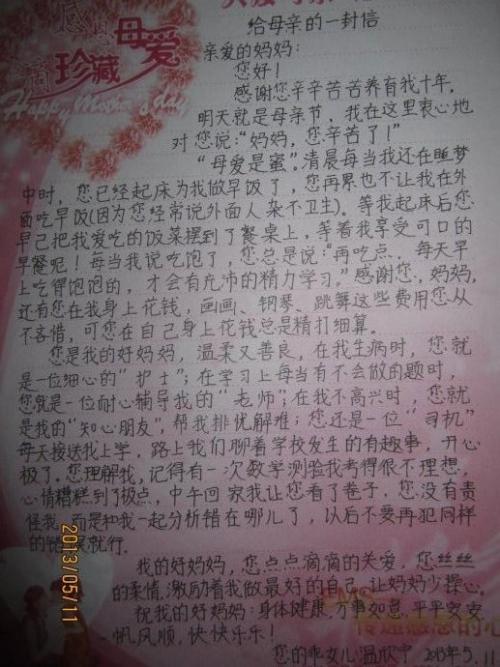 给母亲的一封信
珍藏母爱
Happy Mother's day
亲爱的妈妈:
您好!
感谢您辛辛苦苦养育我十年。
明天就是母亲节,我在这里衷心地
对您说:“妈妈,您辛苦了!”
“母爱是蜜”。清晨每当我还在睡梦
中时,您已经起床为我做早饭了,您再累也不让我在外
面吃早饭(因为您经常说外面人杂不卫生)。等我起床后您
早已把我爱吃的饭菜摆到了餐桌上,等着我享受可口的
早餐呢!每当我说吃饱了,您总是说:“再吃点,每天早
上吃得饱饱的,才会有充沛的精力学习。”感谢您,妈妈,
还有您在我身上花钱,画画、钢琴、跳舞这些费用您从
不吝惜,可您在自己身上花钱总是精打细算。
您是我的好妈妈,温柔又善良,在我生病时,您就
是一位细心的“护士”;在学习上每当有不会做的题时,
您就是一位耐心辅导我的“老师”;在我不高兴时,您就
是我的“知心朋友”,帮我排忧解难;您还是一位“司机”
每天接送我上学,路上我们聊着学校发生的有趣事,开心
极了。您理解我,记得有一次数学测验我考得很不理想,
心情糟糕到了极点,中午回家我让您看了卷子,您没有责
怪我,而是和我一起分析错在哪儿了,以后不要再犯同样
的错误就行。
我的好妈妈,您点点滴滴的关爱,您丝丝
的柔情,激励着我做最好的自己,让妈妈少操心。
祝我的好妈妈:身体健康,万事如意,平平安安
一帆风顺,快快乐乐!
您的乖女儿:温欣宁 2013年5.11
2013/05/11